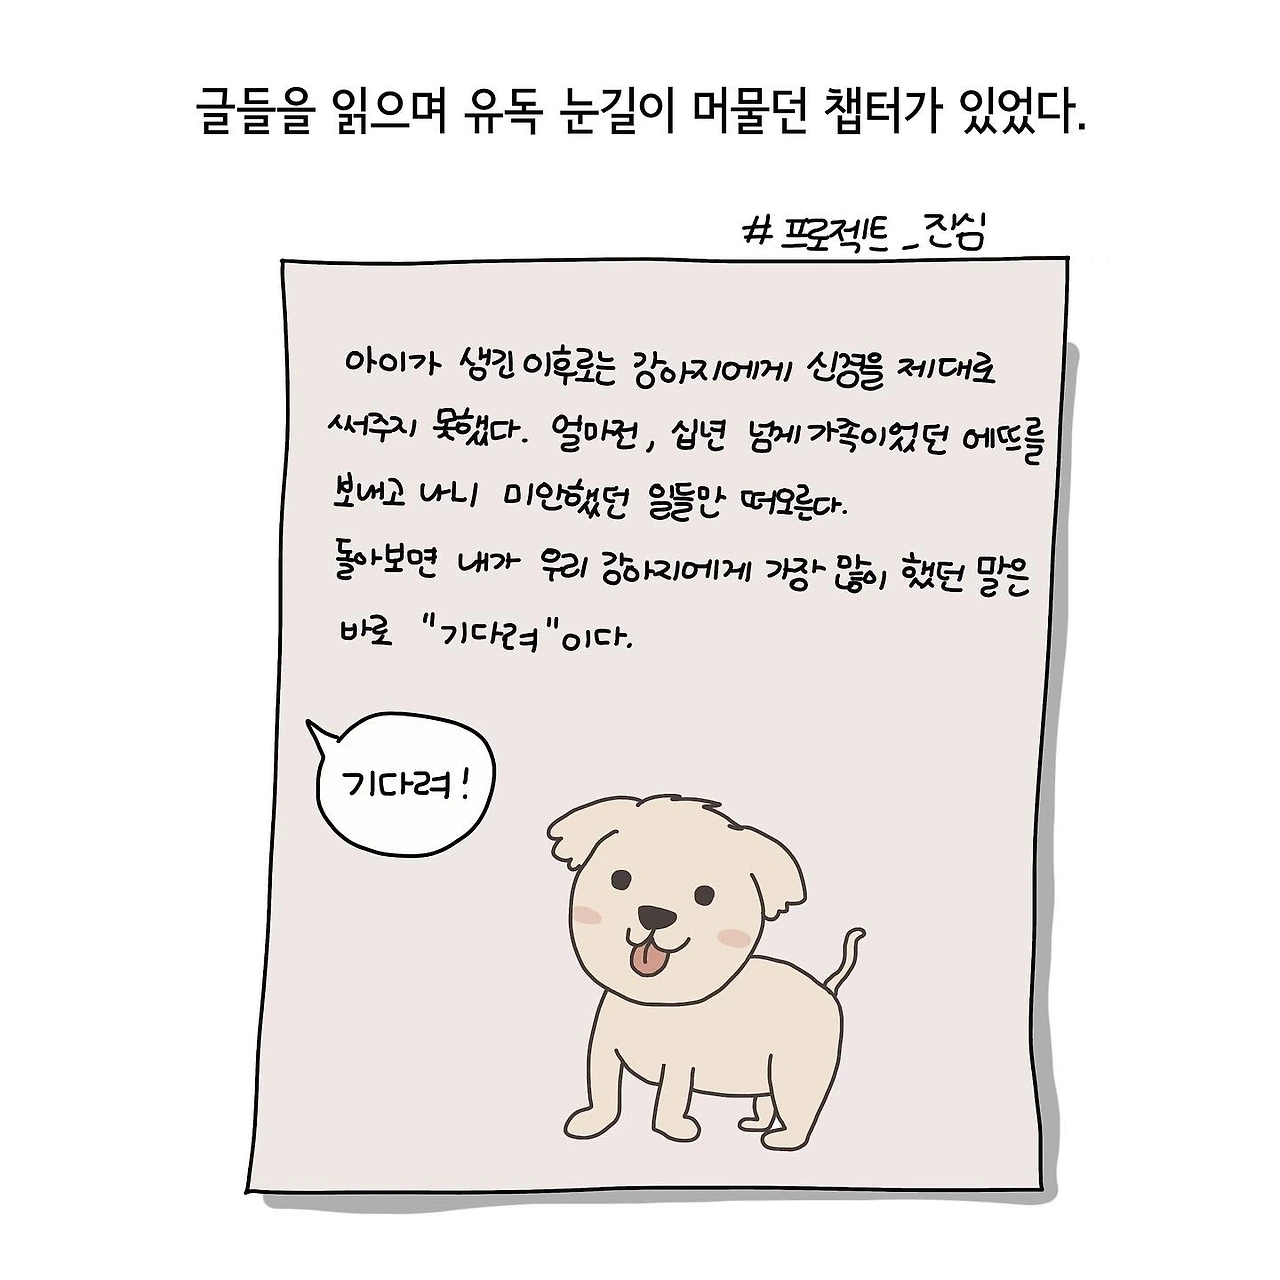 글들을 읽으며 유독 눈길이 머물던 챕터가 있었다.
# 프로젝트 _ 진심
아이가 생긴 이후로는 강아지에게 신경을 제대로
써주지 못했다. 얼마전, 십년 넘게 가족이었던 에뜨를
보내고 나니 미안했던 일들만 떠오른다.
돌아보면 내가 우리 강아지에게 가장 많이 했던 말은
바로 "기다려"이다.
기다려!